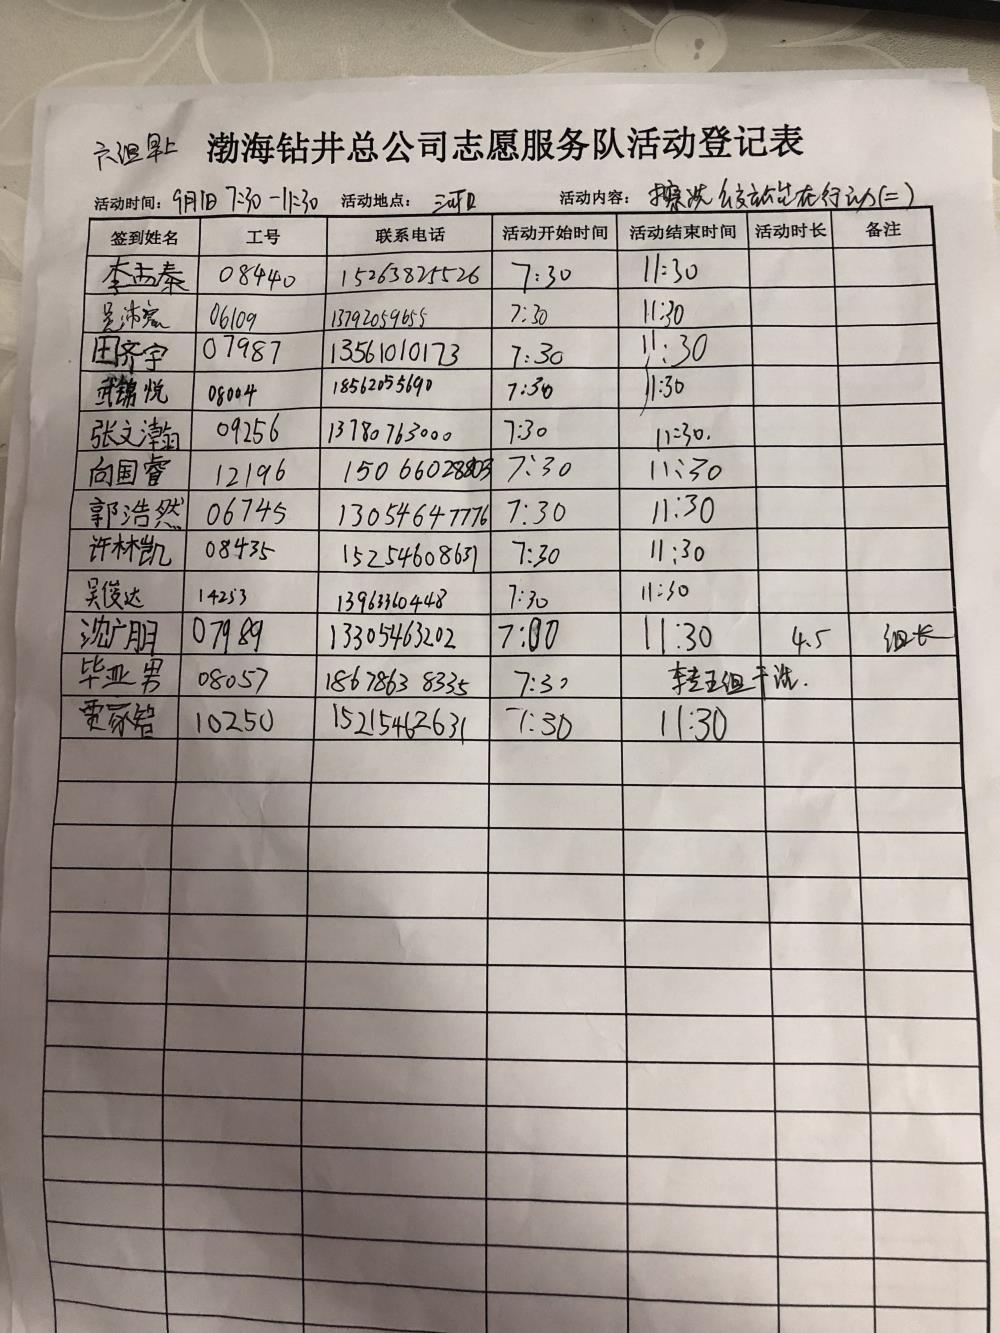 六组早上 渤海钻井总公司志愿服务队活动登记表
活动时间：9月1日 7:30-11:30 活动地点：河口 活动内容：擦洗公交站牌在行动(二)
签到姓名 工号 联系电话 活动开始时间 活动结束时间 活动时长 备注
李孟秦 08440 15263825526 7:30 11:30
吴沛 06109 13792059655 7:30 11:30
田齐宇 07987 13561010173 7:30 11:30
武锦悦 08004 18562055690 7:30 11:30
张文瀚 09256 13780763000 7:30 11:30.
向国睿 12196 15066028803 7:30 11:30
郭浩然 06745 13054647776 7:30 11:30
许林凯 08435 15254608631 7:30 11:30
吴俊达 14253 13963360448 7:30 11:30
沈广朋 07989 13305463202 7:00 11:30 4.5 组长
毕亚男 08057 18678638335 7:30
贾家智 10250 15215462631 7:30 11:30